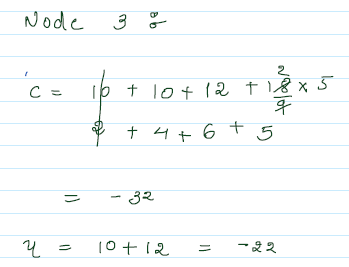 Node 3 :
C = 10 + 10 + 12 + 18/9 2 x 5
2 + 4 + 6 + 5
= - 32
y = 10 + 12 = - 22